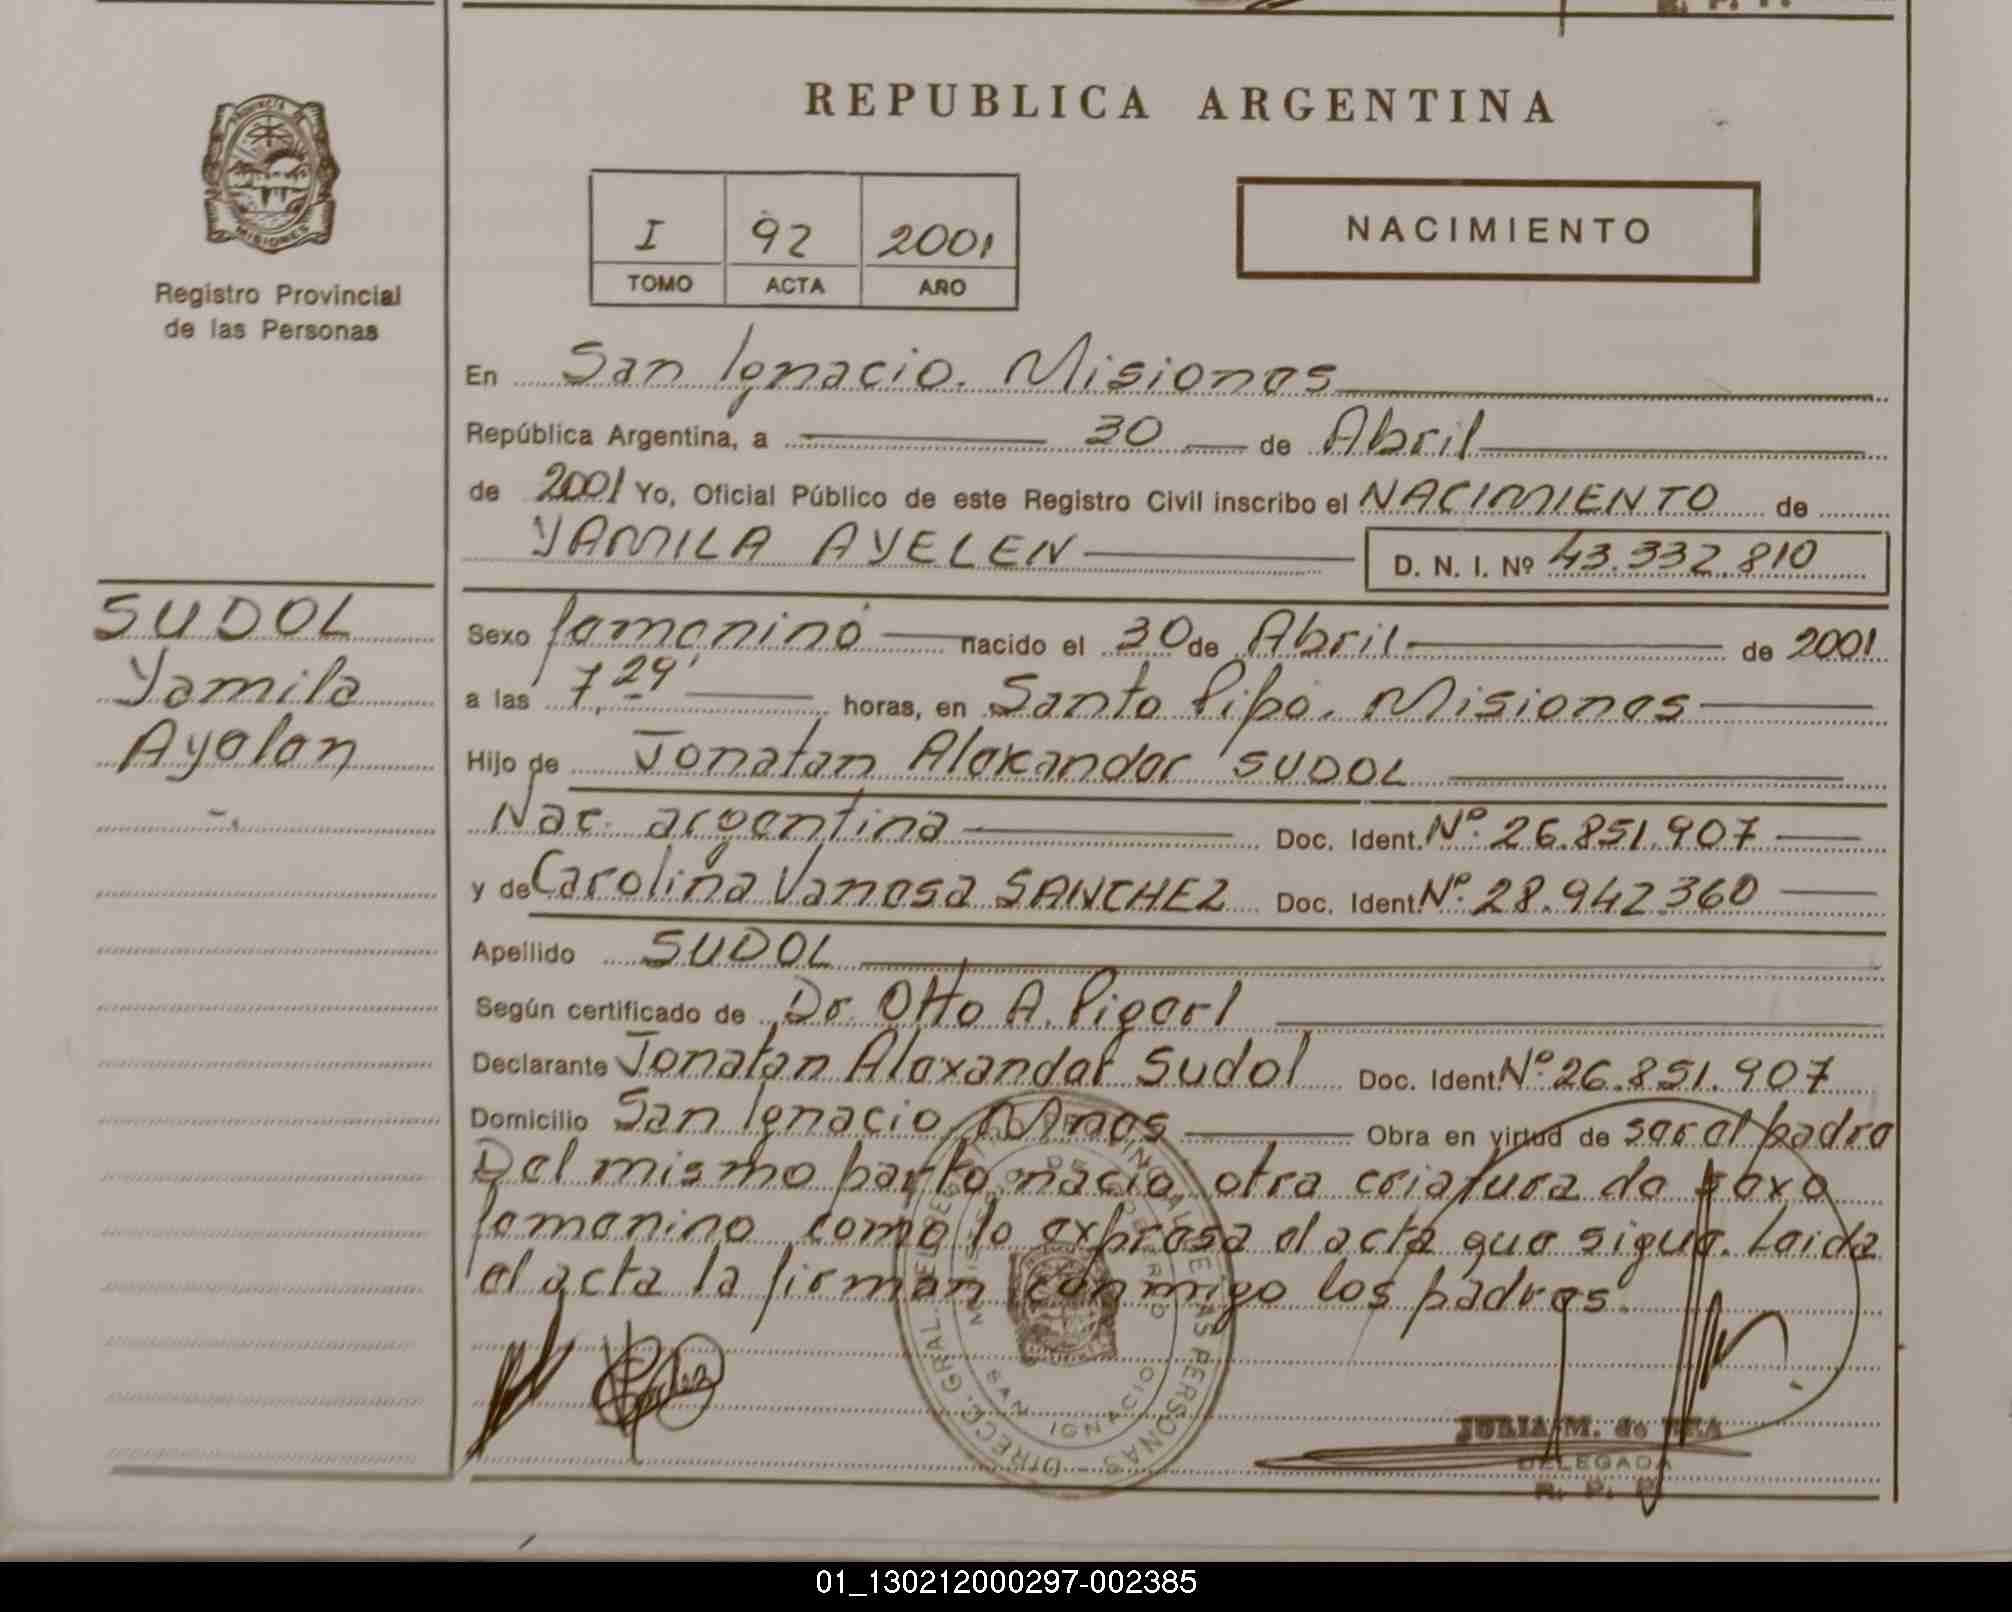 REPUBLICA ARGENTINA
PROVINCIA
MISIONES
Registro Provincial
de las Personas
I 92 2001
TOMO ACTA AÑO
NACIMIENTO
En San Ignacio. Misiones
República Argentina, a 30 de Abril
de 2001 Yo, Oficial Público de este Registro Civil inscribo el NACIMIENTO de
YAMILA AYELEN D. N. I. Nº 43.332.810
SUDOL
Yamila
Ayelen
Sexo femenino nacido el 30 de Abril de 2001
a las 7,29' horas, en Santo Pipó. Misiones
Hijo de Jonatan Alexander SUDOL
Nac. argentina Doc. Ident. Nº 26.851.907
y de Carolina Vanesa SANCHEZ Doc. Ident. Nº 28.942.360
Apellido SUDOL
Según certificado de Dr. Otto A. Pigerl
Declarante Jonatan Alexander Sudol Doc. Ident. Nº 26.851.907
Domicilio San Ignacio, Mnes Obra en virtud de ser el padre
Del mismo parto nació otra criatura de sexo
femenino como lo expresa el acta que sigue. Leida
el acta la firman conmigo los padres.
DIRECC. GRAL. PERSONAS
SAN IGNACIO
DELEGADA
R. P. P.
01_130212000297-002385